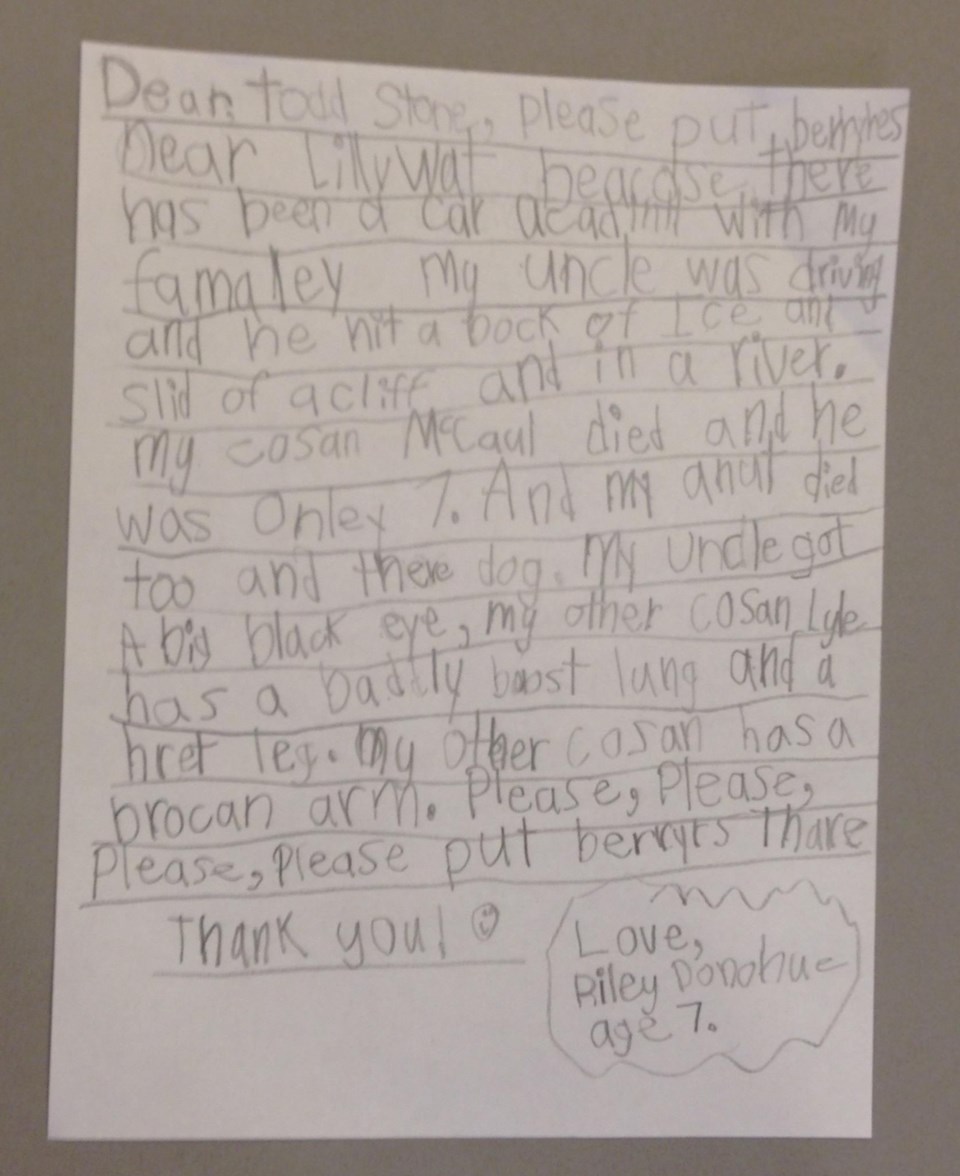 Dear, Todd Stone, please put berryres
Dear Lillywat beacase there
has been a car acadint with my
famaley my uncle was driving
and he hit a bock of Ice and
slid of a cliff and in a river.
my cosan McCaul died and he
was Onley 7. And my anut died
too and there dog. My Uncle got
A big black eye, my other cosan Lyle
has a baddly bost lung and a
hret leg. My other cosan has a
brocan arm. Please, Please,
Please, Please put berryrs Thare
Thank you! ☺
Love,
Riley Donohue
age 7.